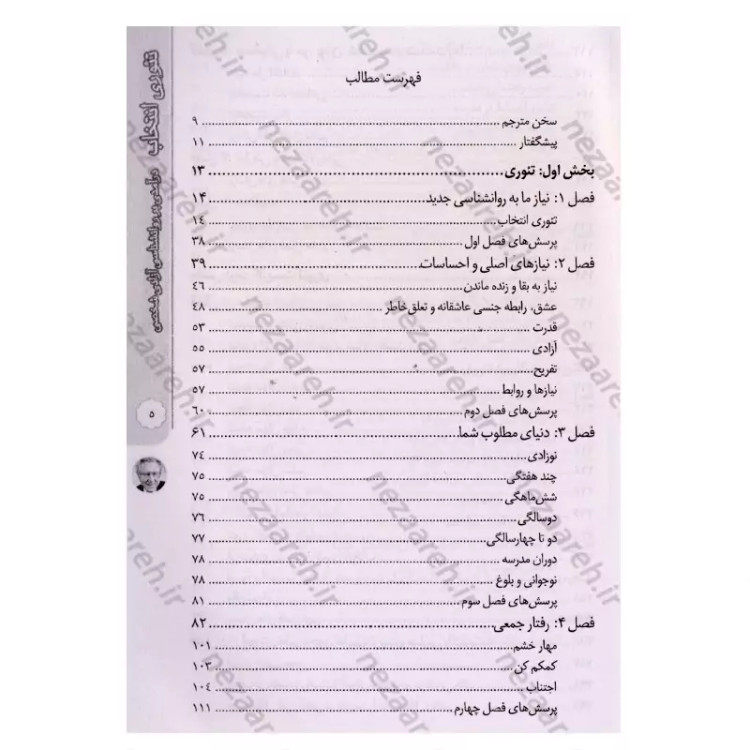 فهرست مطالب
سخن مترجم ........ ۹
پیشگفتار ........ ۱۱
بخش اول: تئوری ........ ۱۳
فصل ۱: نیاز ما به روانشناسی جدید ........ ۱۴
تئوری انتخاب ........ ۱۴
پرسش‌های فصل اول ........ ۳۸
فصل ۲: نیازهای اصلی و احساسات ........ ۳۹
نیاز به بقا و زنده ماندن ........ ۴۶
عشق، رابطه جنسی عاشقانه و تعلق خاطر ........ ۴۸
قدرت ........ ۵۳
آزادی ........ ۵۵
تفریح ........ ۵۷
نیازها و روابط ........ ۵۷
پرسش‌های فصل دوم ........ ۶۰
فصل ۳: دنیای مطلوب شما ........ ۶۱
نوزادی ........ ۷۴
چند هفتگی ........ ۷۵
شش‌ماهگی ........ ۷۵
دوسالگی ........ ۷۶
دو تا چهارسالگی ........ ۷۷
دوران مدرسه ........ ۷۸
نوجوانی و بلوغ ........ ۷۸
پرسش‌های فصل سوم ........ ۸۱
فصل ۴: رفتار جمعی ........ ۸۲
مهار خشم ........ ۱۰۱
کمکم کن ........ ۱۰۳
اجتناب ........ ۱۰۴
پرسش‌های فصل چهارم ........ ۱۱۱
تئوری انتخاب درآمدی بر روانشناسی آزادی شخصی
۵
nezaareh.ir